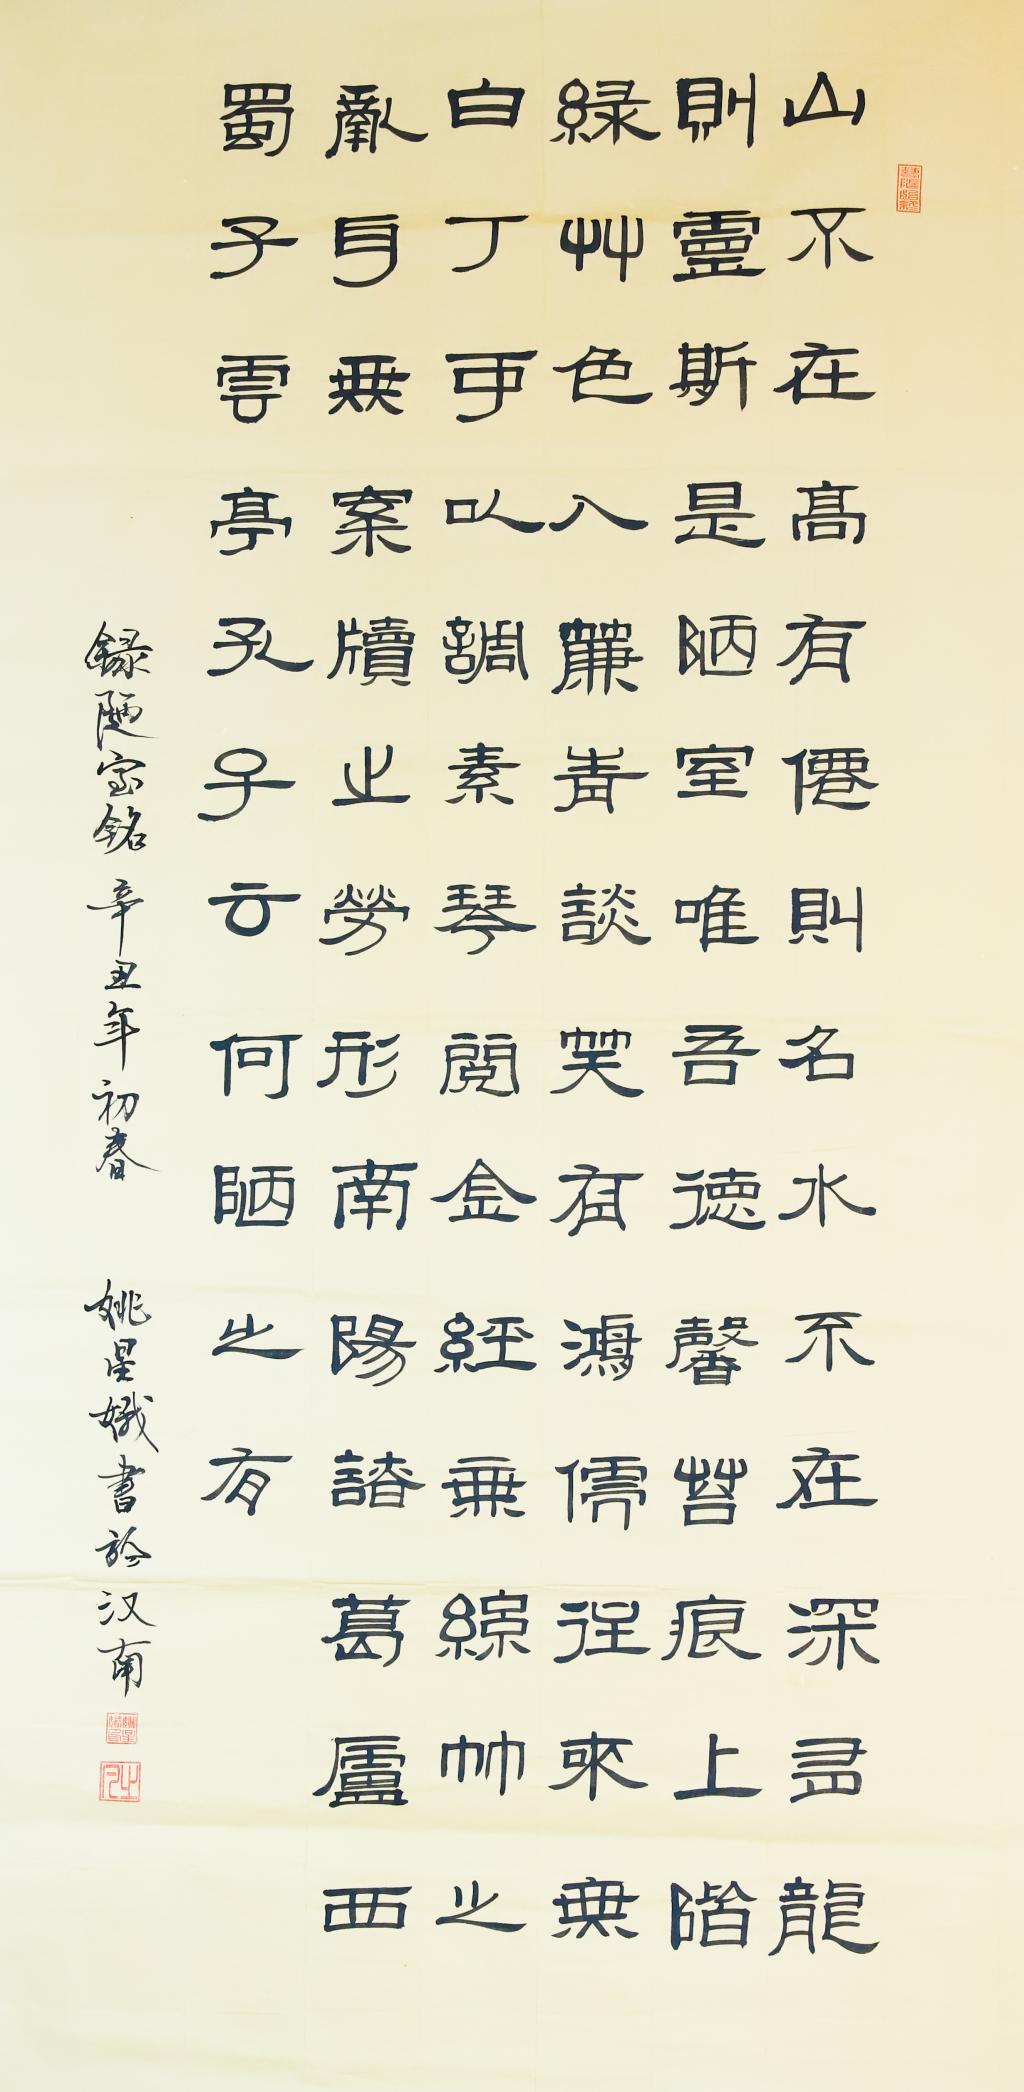 山不在高有僊則名水不在深龍
則靈斯是陋室唯吾德馨苔痕上階
緑艸色入簾青談笑有鴻儒往來無
白丁可以調素琴閱金經無絲竹之
亂耳無案牘之勞形南陽諸葛廬西
蜀子雲亭孔子云何陋之有
録陋室銘 辛丑年初春 姚星娥書於汉南